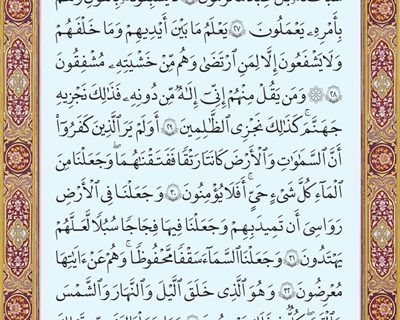 بِأَمْرِهِۦ يَعْمَلُونَ ۝٢٧ يَعْلَمُ مَا بَيْنَ أَيْدِيهِمْ وَمَا خَلْفَهُمْ
وَلَا يَشْفَعُونَ إِلَّا لِمَنِ ٱرْتَضَىٰ وَهُم مِّنْ خَشْيَتِهِۦ مُشْفِقُونَ
۝٢٨ ۞ وَمَن يَقُلْ مِنْهُمْ إِنِّىٓ إِلَٰهٌ مِّن دُونِهِۦ فَذَٰلِكَ نَجْزِيهِ
جَهَنَّمَ ۚ كَذَٰلِكَ نَجْزِى ٱلظَّٰلِمِينَ ۝٢٩ أَوَلَمْ يَرَ ٱلَّذِينَ كَفَرُوٓا۟
أَنَّ ٱلسَّمَٰوَٰتِ وَٱلْأَرْضَ كَانَتَا رَتْقًا فَفَتَقْنَٰهُمَا ۖ وَجَعَلْنَا مِنَ
ٱلْمَآءِ كُلَّ شَىْءٍ حَىٍّ ۖ أَفَلَا يُؤْمِنُونَ ۝٣٠ وَجَعَلْنَا فِى ٱلْأَرْضِ
رَوَٰسِىَ أَن تَمِيدَ بِهِمْ وَجَعَلْنَا فِيهَا فِجَاجًا سُبُلًا لَّعَلَّهُمْ
يَهْتَدُونَ ۝٣١ وَجَعَلْنَا ٱلسَّمَآءَ سَقْفًا مَّحْفُوظًا ۖ وَهُمْ عَنْ ءَايَٰتِهَا
مُعْرِضُونَ ۝٣٢ وَهُوَ ٱلَّذِى خَلَقَ ٱلَّيْلَ وَٱلنَّهَارَ وَٱلشَّمْسَ